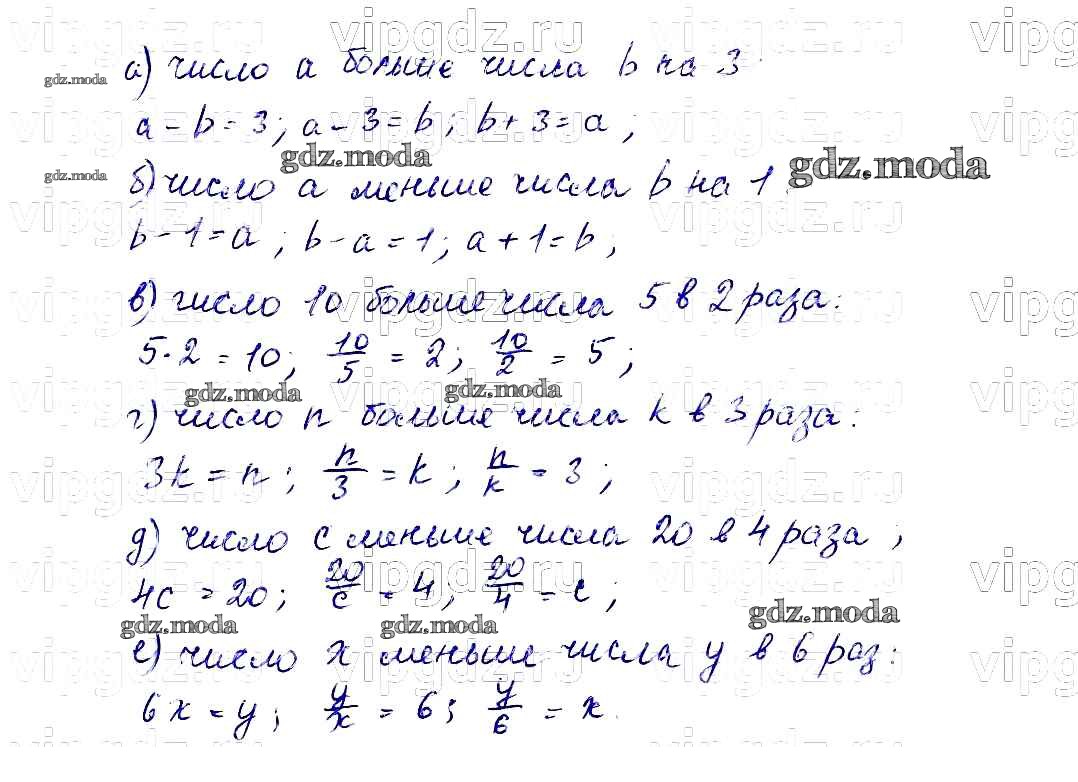 а) число a больше числа b на 3
a - b = 3; a - 3 = b; b + 3 = a;
б) число a меньше числа b на 1
b - 1 = a; b - a = 1; a + 1 = b;
в) число 10 больше числа 5 в 2 раза:
5 · 2 = 10; 10/5 = 2; 10/2 = 5;
г) число n больше числа k в 3 раза:
3k = n; n/3 = k; n/k = 3;
д) число c меньше числа 20 в 4 раза;
4c = 20; 20/c = 4; 20/4 = c;
е) число x меньше числа y в 6 раз:
6x = y; y/x = 6; y/6 = x.
vipgdz.ru
gdz.moda